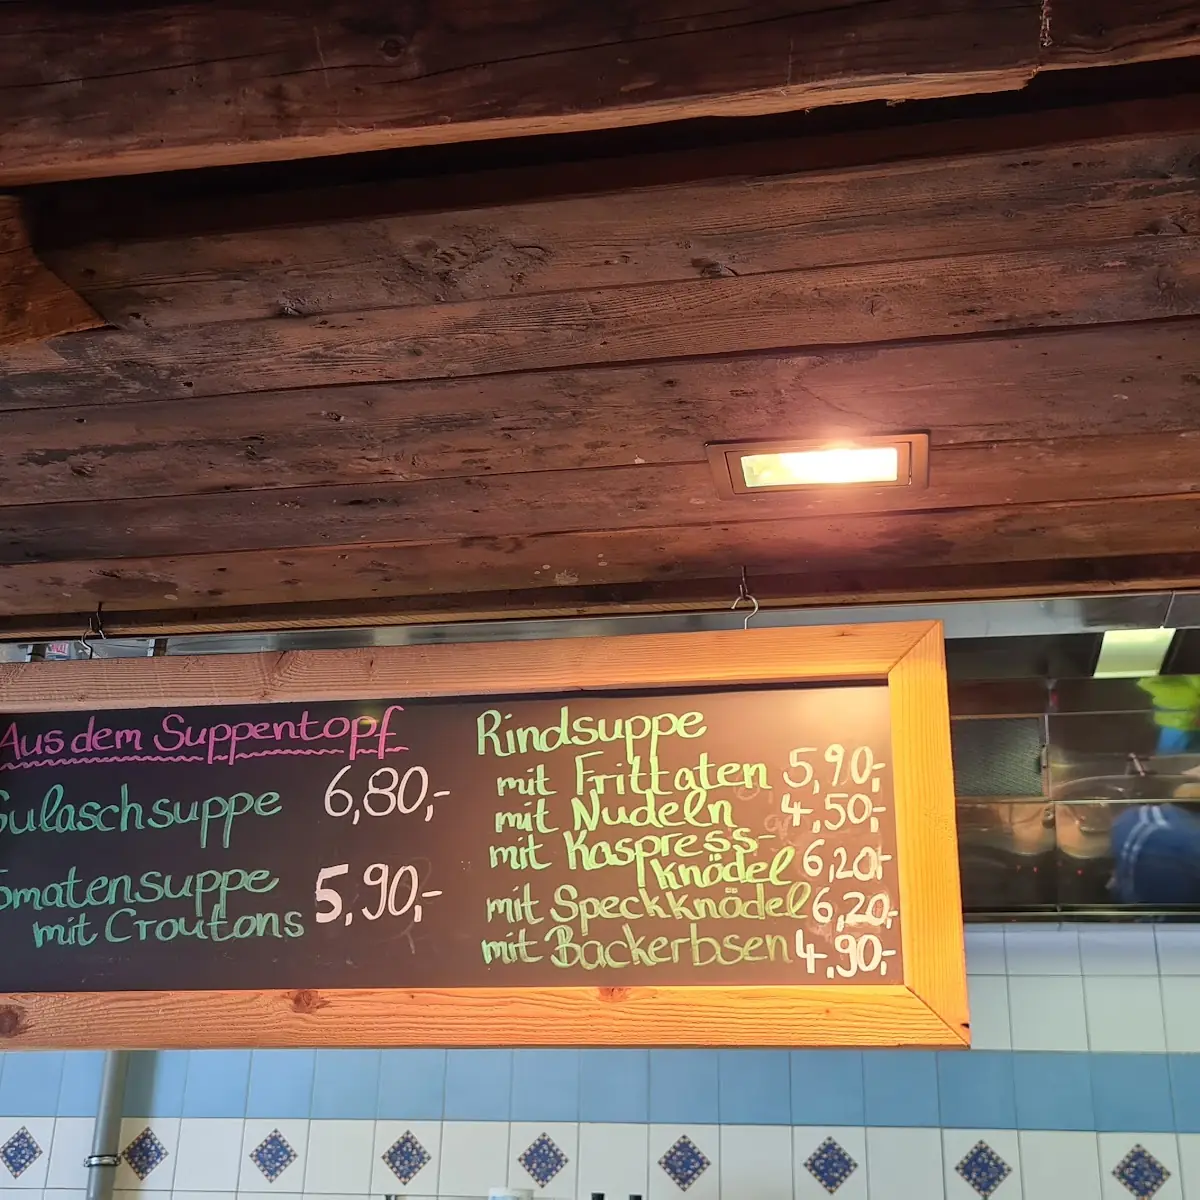 Aus dem Suppentopf
Gulaschsuppe 6,80,-
Tomatensuppe
mit Croutons 5,90,-
Rindsuppe
mit Frittaten 5,90,-
mit Nudeln 4,50,-
mit Kaspress-
knödel 6,20,-
mit Speckknödel 6,20,-
mit Backerbsen 4,90,-